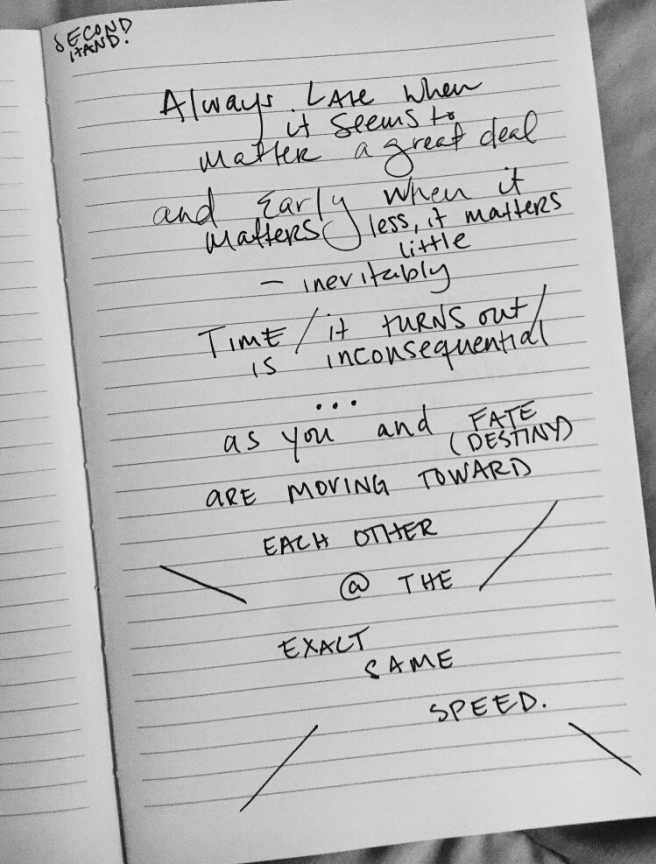 SECOND
HAND.
Always Late when
it seems to
matter a great deal
and Early when it
matters less, it matters
little
– inevitably
TIME / it TURNS out /
is inconsequential
...
as you and FATE
(DESTINY)
ARE MOVING TOWARD
EACH OTHER
@ THE
EXACT
SAME
SPEED.